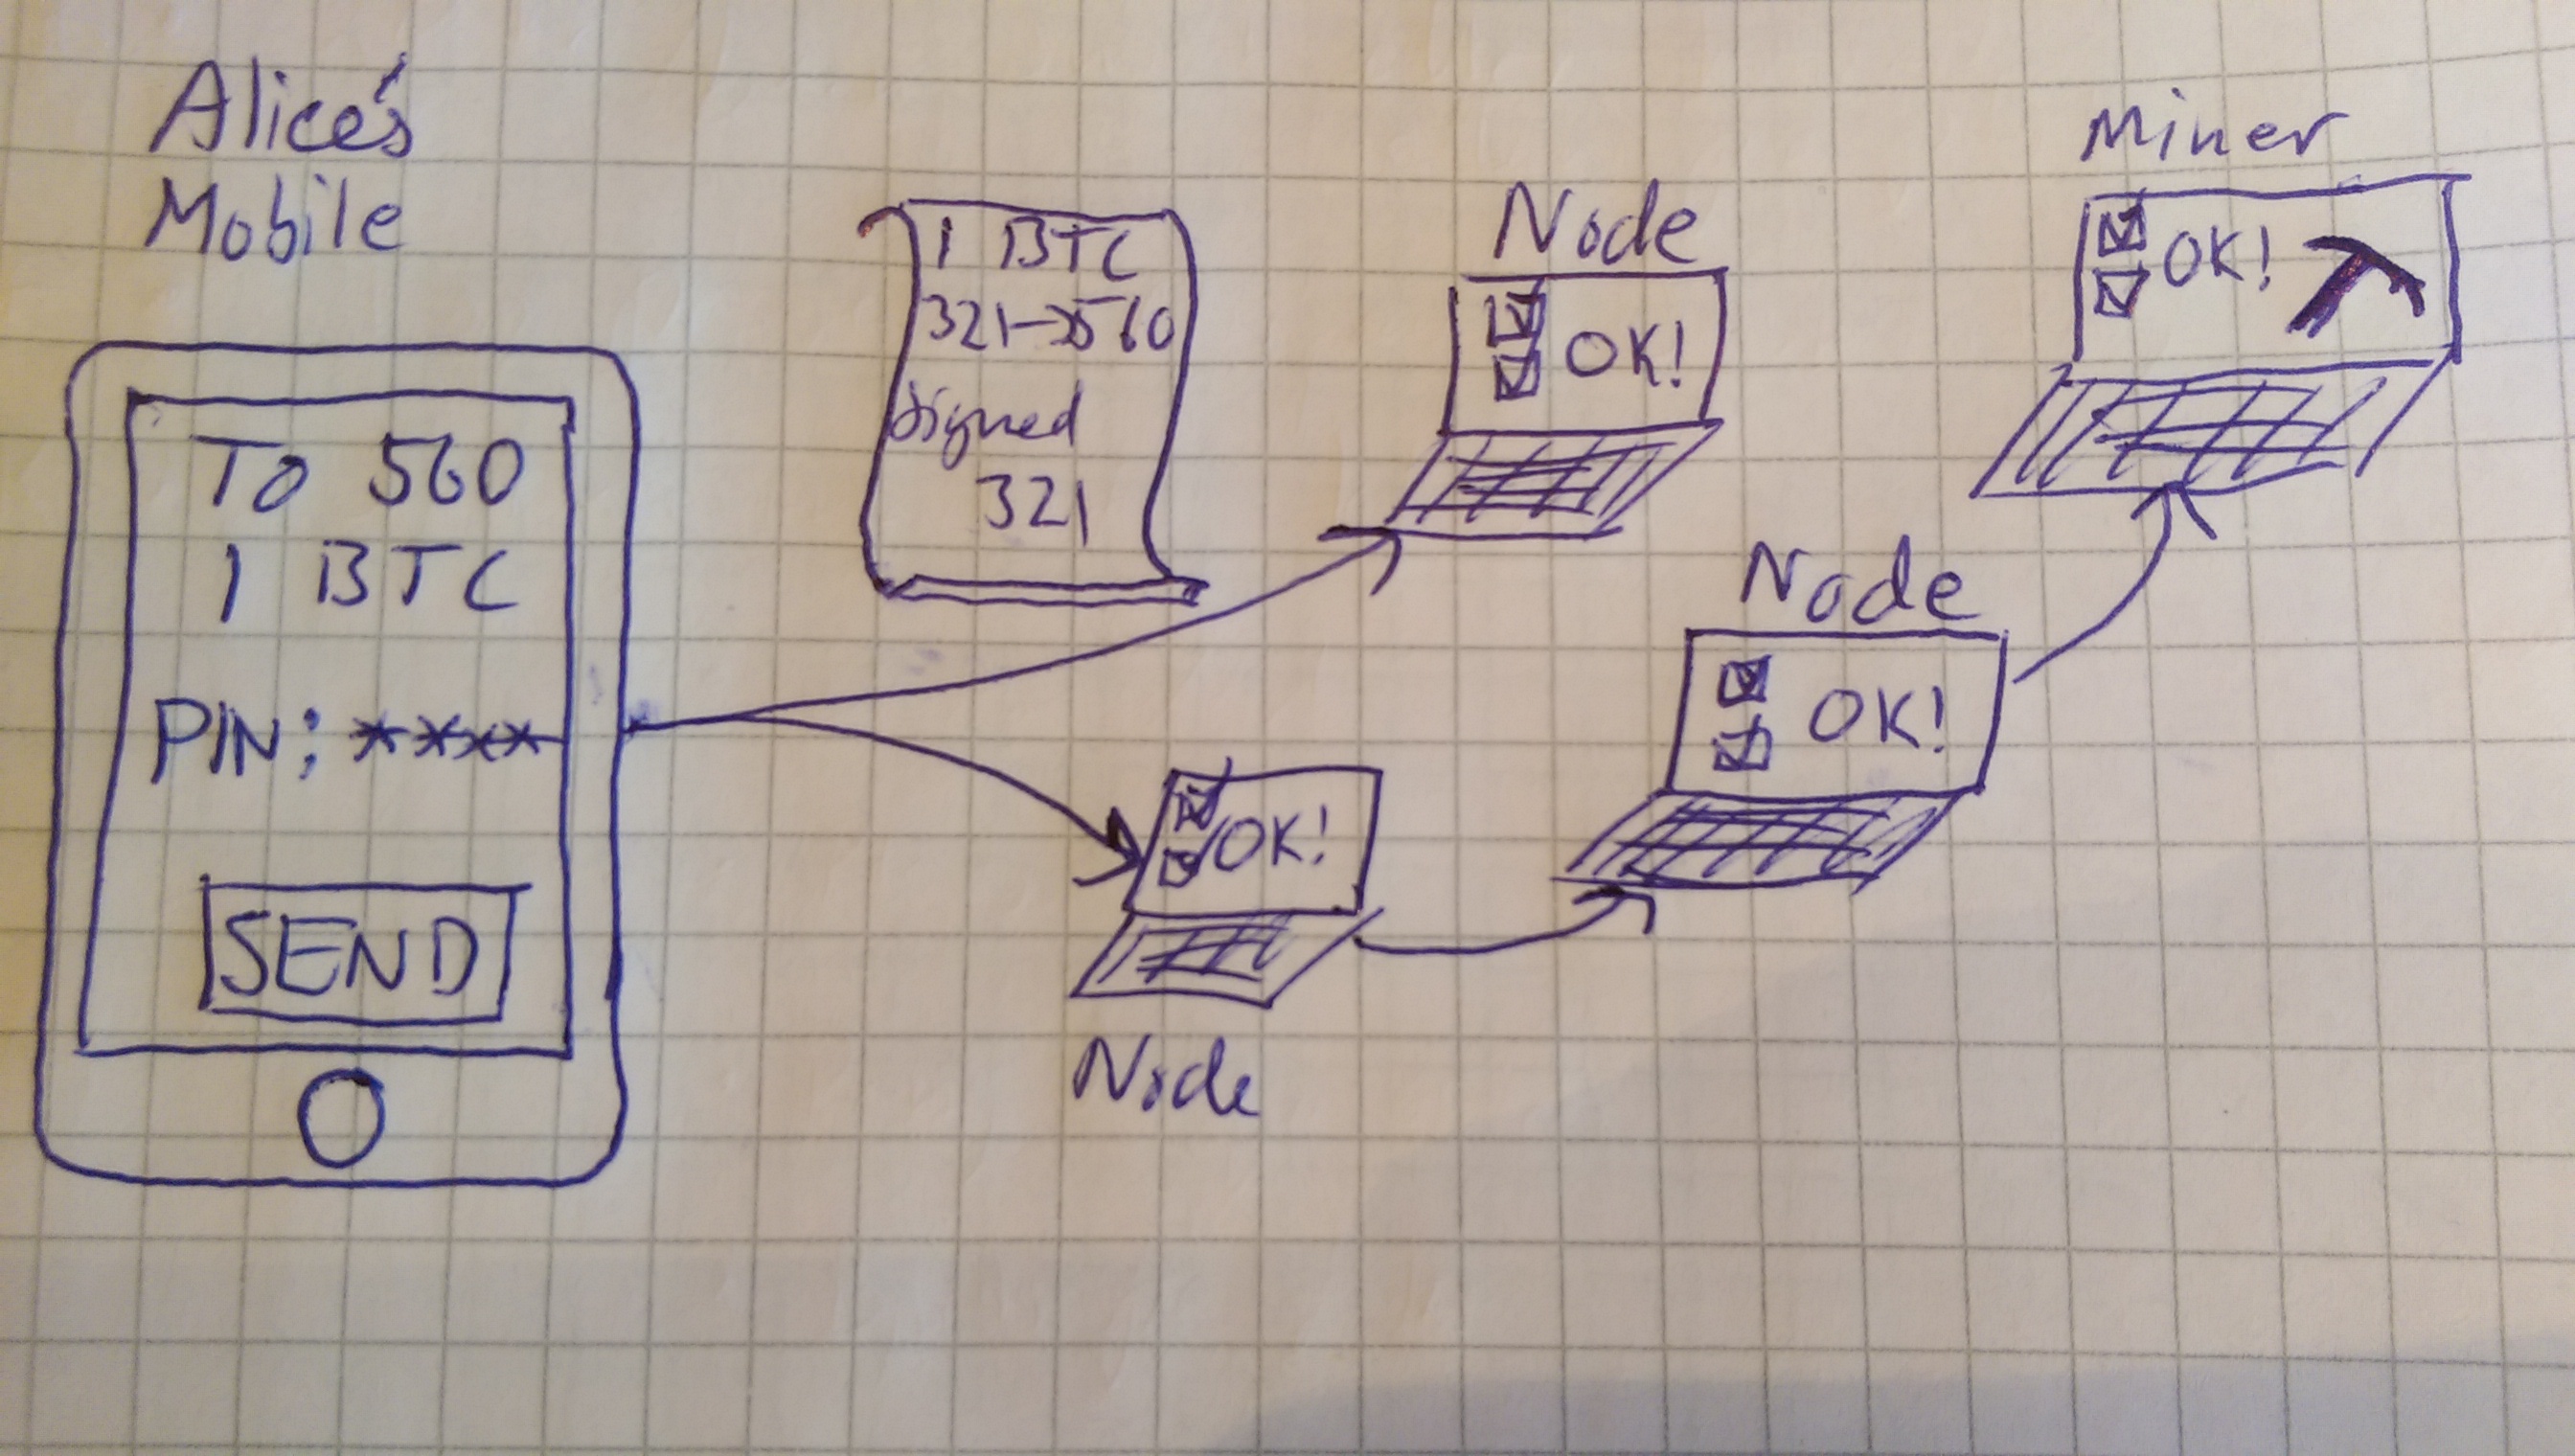 Alice's
Mobile
To 560
1 BTC
PIN: ****
SEND
1 BTC
321→560
Signed
321
Node
OK!
Node
OK!
Node
OK!
Miner
OK!